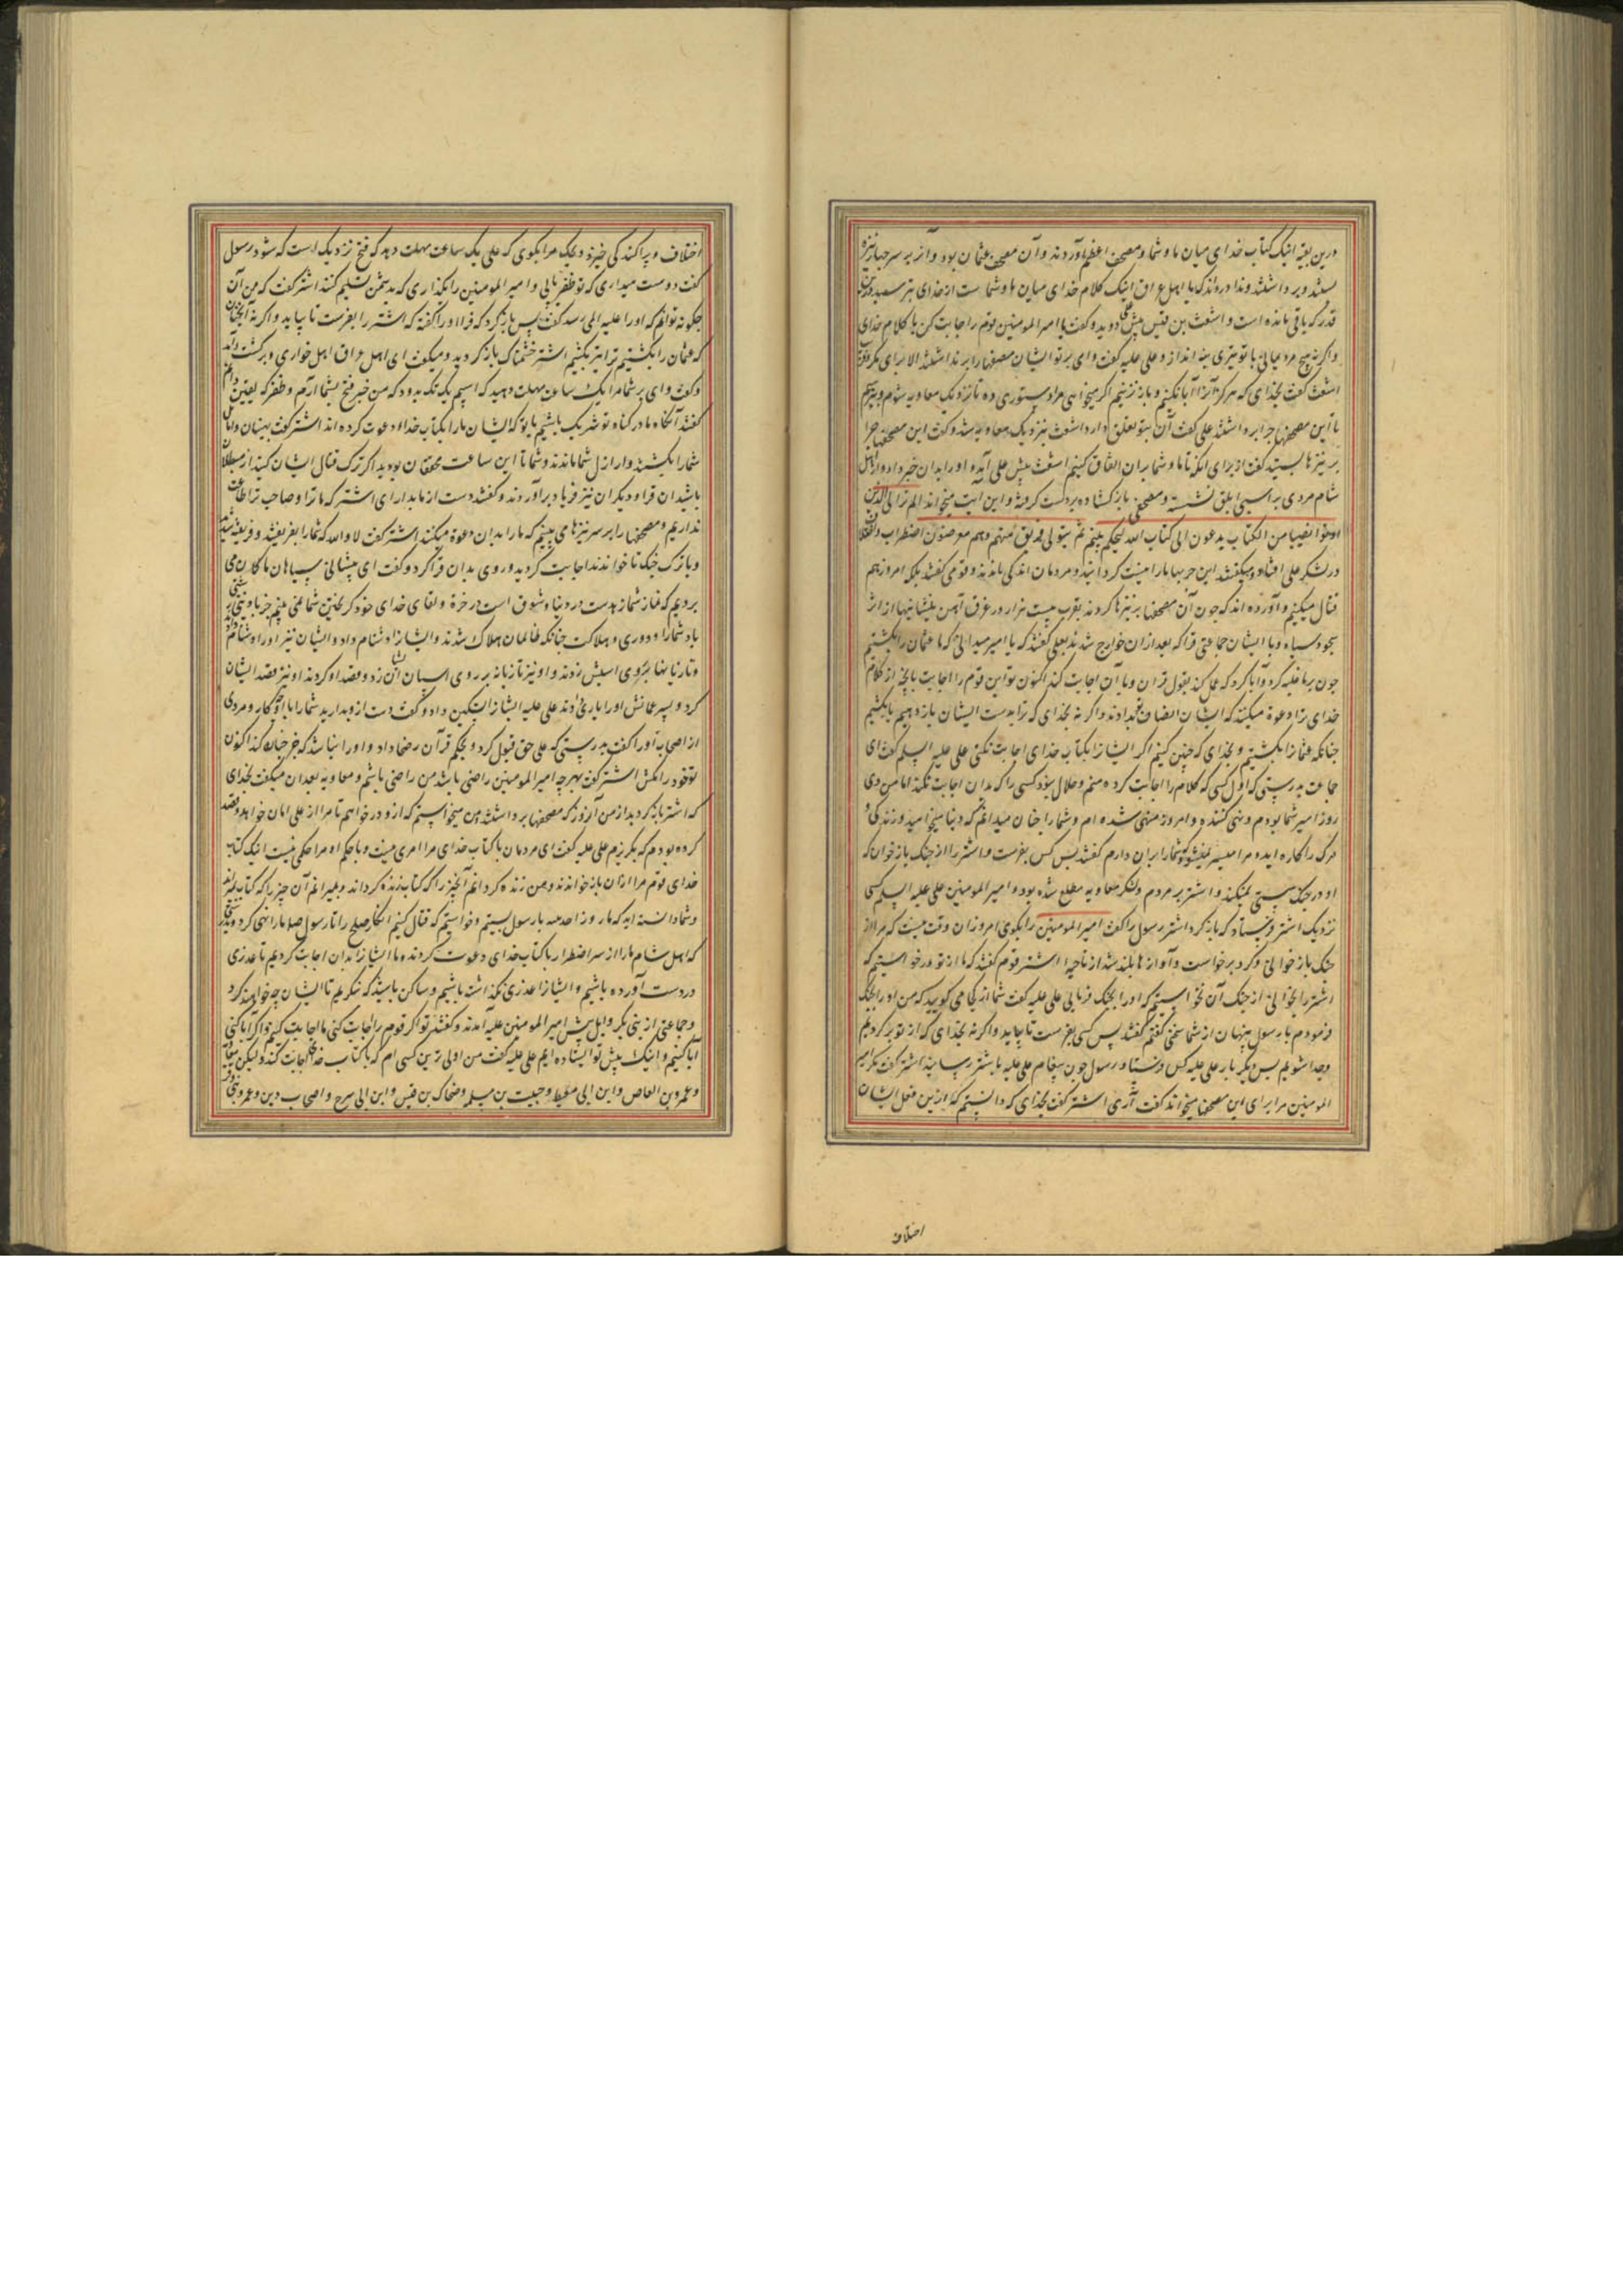 درین بقیه اینک کتاب خدای میان ما و شما و مصحف اعظم آوردند و آن مصحف عثمان بود و آنرا بر سر چهار نیزه
بستند و برداشتند و ندا دردادند که یا اهل عراق اینک کلام خدای میان ما و شماست از خدای بترسید
قدر که باقی مانده است و اشعث بن قیس پیش علی دوید و گفت یا امیر المومنین قوم را اجابت کن با کلام خدای
واکر نه هیچ مرد یمانی با تو تیری نیندازد و علی علیه گفت وای بر تو ایشان مصحفها را برنداشتند الا برای مکر
اشعث گفت بخدای که هرکز آنرا ابا نکنیم و باز نزنیم اکر میخواهی مرا دستوری ده تا نزدیک معاویه شوم و بپرسم
تا این مصحفها چرا برداشتند علی گفت آن بتو تعلق دارد اشعث بنزدیک معاویه شد و گفت این مصحفها چرا
بر نیزها بستید گفت از برای آنکه تا ما و شما بران اتفاق کنیم اشعث پیش علی آمد و او را بدان خبر داد و از اهل
شام مردی بر اسبی ابلق نشسته و مصحفی باز کشاده بر دست گرفته و این آیت میخواند الم تر الی الذین
اوتوا نصیبا من الکتاب یدعون الی کتاب الله لیحکم بینهم ثم یتولی فریق منهم وهم معرضون اضطراب و اختلاف
در لشکر علی افتاد و میکفتند این حربها ما را نیست کردانید و مردمان اندکی ماندند و قومی کفتند بلکه امروز هم
قتال میکنیم و آورده اند که چون آن مصحفها بر نیزها کردند بقرب بیست هزار مرد غرق آهن پیشانیها از اثر
سجود سیاه و با ایشان جماعتی قرا که بعد ازان خوارج شدند بعلی کفتند که یا امیر میدانی که ما عثمان را بکشتیم
چون بر ما غلبه کرد و ابا کرد که عمل کند بقول قران و با آن اجابت کند اکنون تو این قوم را اجابت با آنچه از کلام
خدای ترا دعوة میکنند که ایشان انصاف بدادند و اکر نه بخدای که ترا بدست ایشان باز دهیم یا بکشیم
چنانکه عثمانرا بکشتیم و بخدای که چنین کنیم اکر ایشانرا بکتاب خدای اجابت نکنی علی علیه السلم گفت ای
جماعت بدرستی که اول کسی که کلام را اجابت کرده منم و حلال نبود کسی را که بدان اجابت نکند اما من دی
روز امیر شما بودم و نهی کننده و امروز منهی شده ام و شما را چنان میدانم که دنیا میخواهید و زندکی و
مرک را کاره اید و مرا میسر نمیشود که شما را بران دارم کفتند پس کس بفرست و اشتر را از جنک باز خوان که
او در جنک سستی نمیکند و اشتر بر مردم و لشکر معاویه مطلع شده بود و امیر المومنین علی علیه السلم کسی
نزدیک اشتر فرستاد که باز کرد اشتر رسول را گفت امیر المومنین را بکوی امروز آن وقت نیست که مرا از
جنک باز خوانی و کرد برخواست و آوازها بلند شد از ناحیه اشتر قوم کفتند که ما از تو درخواستیم که
اشتر را بخوانی از جنک آن نخواستیم که او را بجنک فرمایی علی علیه گفت شما از کجا می کویید که من او را بجنک
فرمودم با رسول پنهان از شما سخنی کفتم کفتند پس کسی بفرست تا بیاید و اکر نه بخدای که از تو برکردیم
وجدا شویم پس دیکر بار علی علیه کس فرستاد و رسول چون پیغام علی علیه باشتر رسانید اشتر گفت مکر امیر
المومنین مرا برای این مصحفها میخواند گفت آری اشتر گفت بخدای که دانستم که ازین فعل ایشان
اختلاف
اختلاف و پراکندکی خیزد و لیک مرا بکوی که علی یک ساعت مهلت دهد که فتح نزدیک است که شود رسول
گفت دوست میداری که تو ظفر یابی و امیر المومنین را بکذاری که بدشمن تسلیم کنند اشتر گفت که من آن
چکونه توانم که او را علیه المی رسد گفت پس باز کرد که قرا او را کفته که اشتر را بفرست تا بیاید و اکر نه آنچنان
که عثمان را بکشتیم ترا نیز بکشیم اشتر خشمناک باز کردید و میکفت ای اهل عراق ای اهل خواری و برکشت
وگفت وای بر شما مرا یک ساعت مهلت دهید که اسبم یک تک بدود که من خبر فتح بشما آرم و ظفر که یقین
کفتند آنکاه ما در کناه تو شریک باشیم یا تو که ایشان ما را بکتاب خدا دعوت کرده اند اشتر گفت
شما را بکشتند و اراذل شما ماندند و شما تا این ساعت محقان بودید اکر ترک قتال ایشان کنید از مبطلان
باشید ان قرا و دیکران نیز فریاد برآوردند و کفتند دست از ما بدار ای اشتر که ما ترا و صاحب ترا طاعت
نداریم و مصحفها را بر سر نیزها می بینیم که ما را بدان دعوة میکنند اشتر گفت لا والله که شما را بفریفتند و فریفته شدید
وبا ترک جنک تا خواندند اجابت کردید و روی بدان قرا کرد و گفت ای پیشانی سیاهان ما کمان می
بردیم که نماز شما زهدست در دنیا و شوق است در آخرة و لقای خدای خود کریختن شما نمی بینم
باد شما را و دوری و هلاکت چنانکه ظالمان هلاک شدند و ایشانرا دشنام داد و ایشان نیز او را دشنام
وتازیانها بر روی اسبش زدند و او نیز تازیانه بر روی اسبان ایشان زد و قصد او کردند او نیز قصد ایشان
کرد و پسر عمانش او را یاری دادند علی علیه ایشانرا تسکین داد و گفت دست از وبدارید شما را با او چه کار و مردی
از اصحاب او را گفت بدرستی که علی حق قبول کرد و بحکم قرآن رضا داد و او را جز چنان کند اکنون
تو خود را مکش اشتر گفت بهرچه امیر المومنین راضی باشد من راضی باشم و معاویه بعد ازان میکفت بخدای
که اشتر باز کردید از من آنروز که مصحفها برداشتند من میخواستم که ازو درخواهم تا مرا از علی امان خواهد و قصد
کرده بودم که بکریزم علی علیه گفت ای مردمان با کتاب خدای مرا امری نیست و با حکم او مرا حکمی نیست اینک کتاب
خدای قوم مرا ازان باز خواندند و من زنده کردانم آنچیز را که کتاب زنده کرداند و بمیرانم آن چیز را که کتاب بمیراند
وشما دانسته اید که ما روز احدیبیه با رسول بیستیم و خواستیم که قتال کنیم انکار صلح را تا رسول صلعم ما را نهی کرد
که اهل شام ما را از سر اضطرار با کتاب خدای دعوت کردند و ما ایشانرا بدان اجابت کردیم تا عذری
در دست آورده باشیم و ایشانرا عذری نکذاشته باشیم و ساکن باشید که بنکریم تا ایشان چه خواهند کرد
وجماعتی از بنی بکر وایل پیش امیر المومنین علیه آمدند و کفتند تو اکر قوم را اجابت کنی ما اجابت کنیم و اکر ابا کنی
ابا کنیم و اینک پیش تو ایستاده ایم علی علیه گفت من اولی ترین کسی ام که با کتاب خدای اجابت کند و لیکن معاویه
وعمرو بن العاص و ابن ابی معیط و حبیب بن مسلمه و ضحاک بن قیس و ابن ابی سرح و اصحاب دین